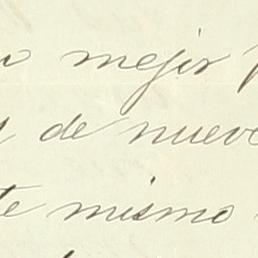 mejor
de nuevo
te mismo